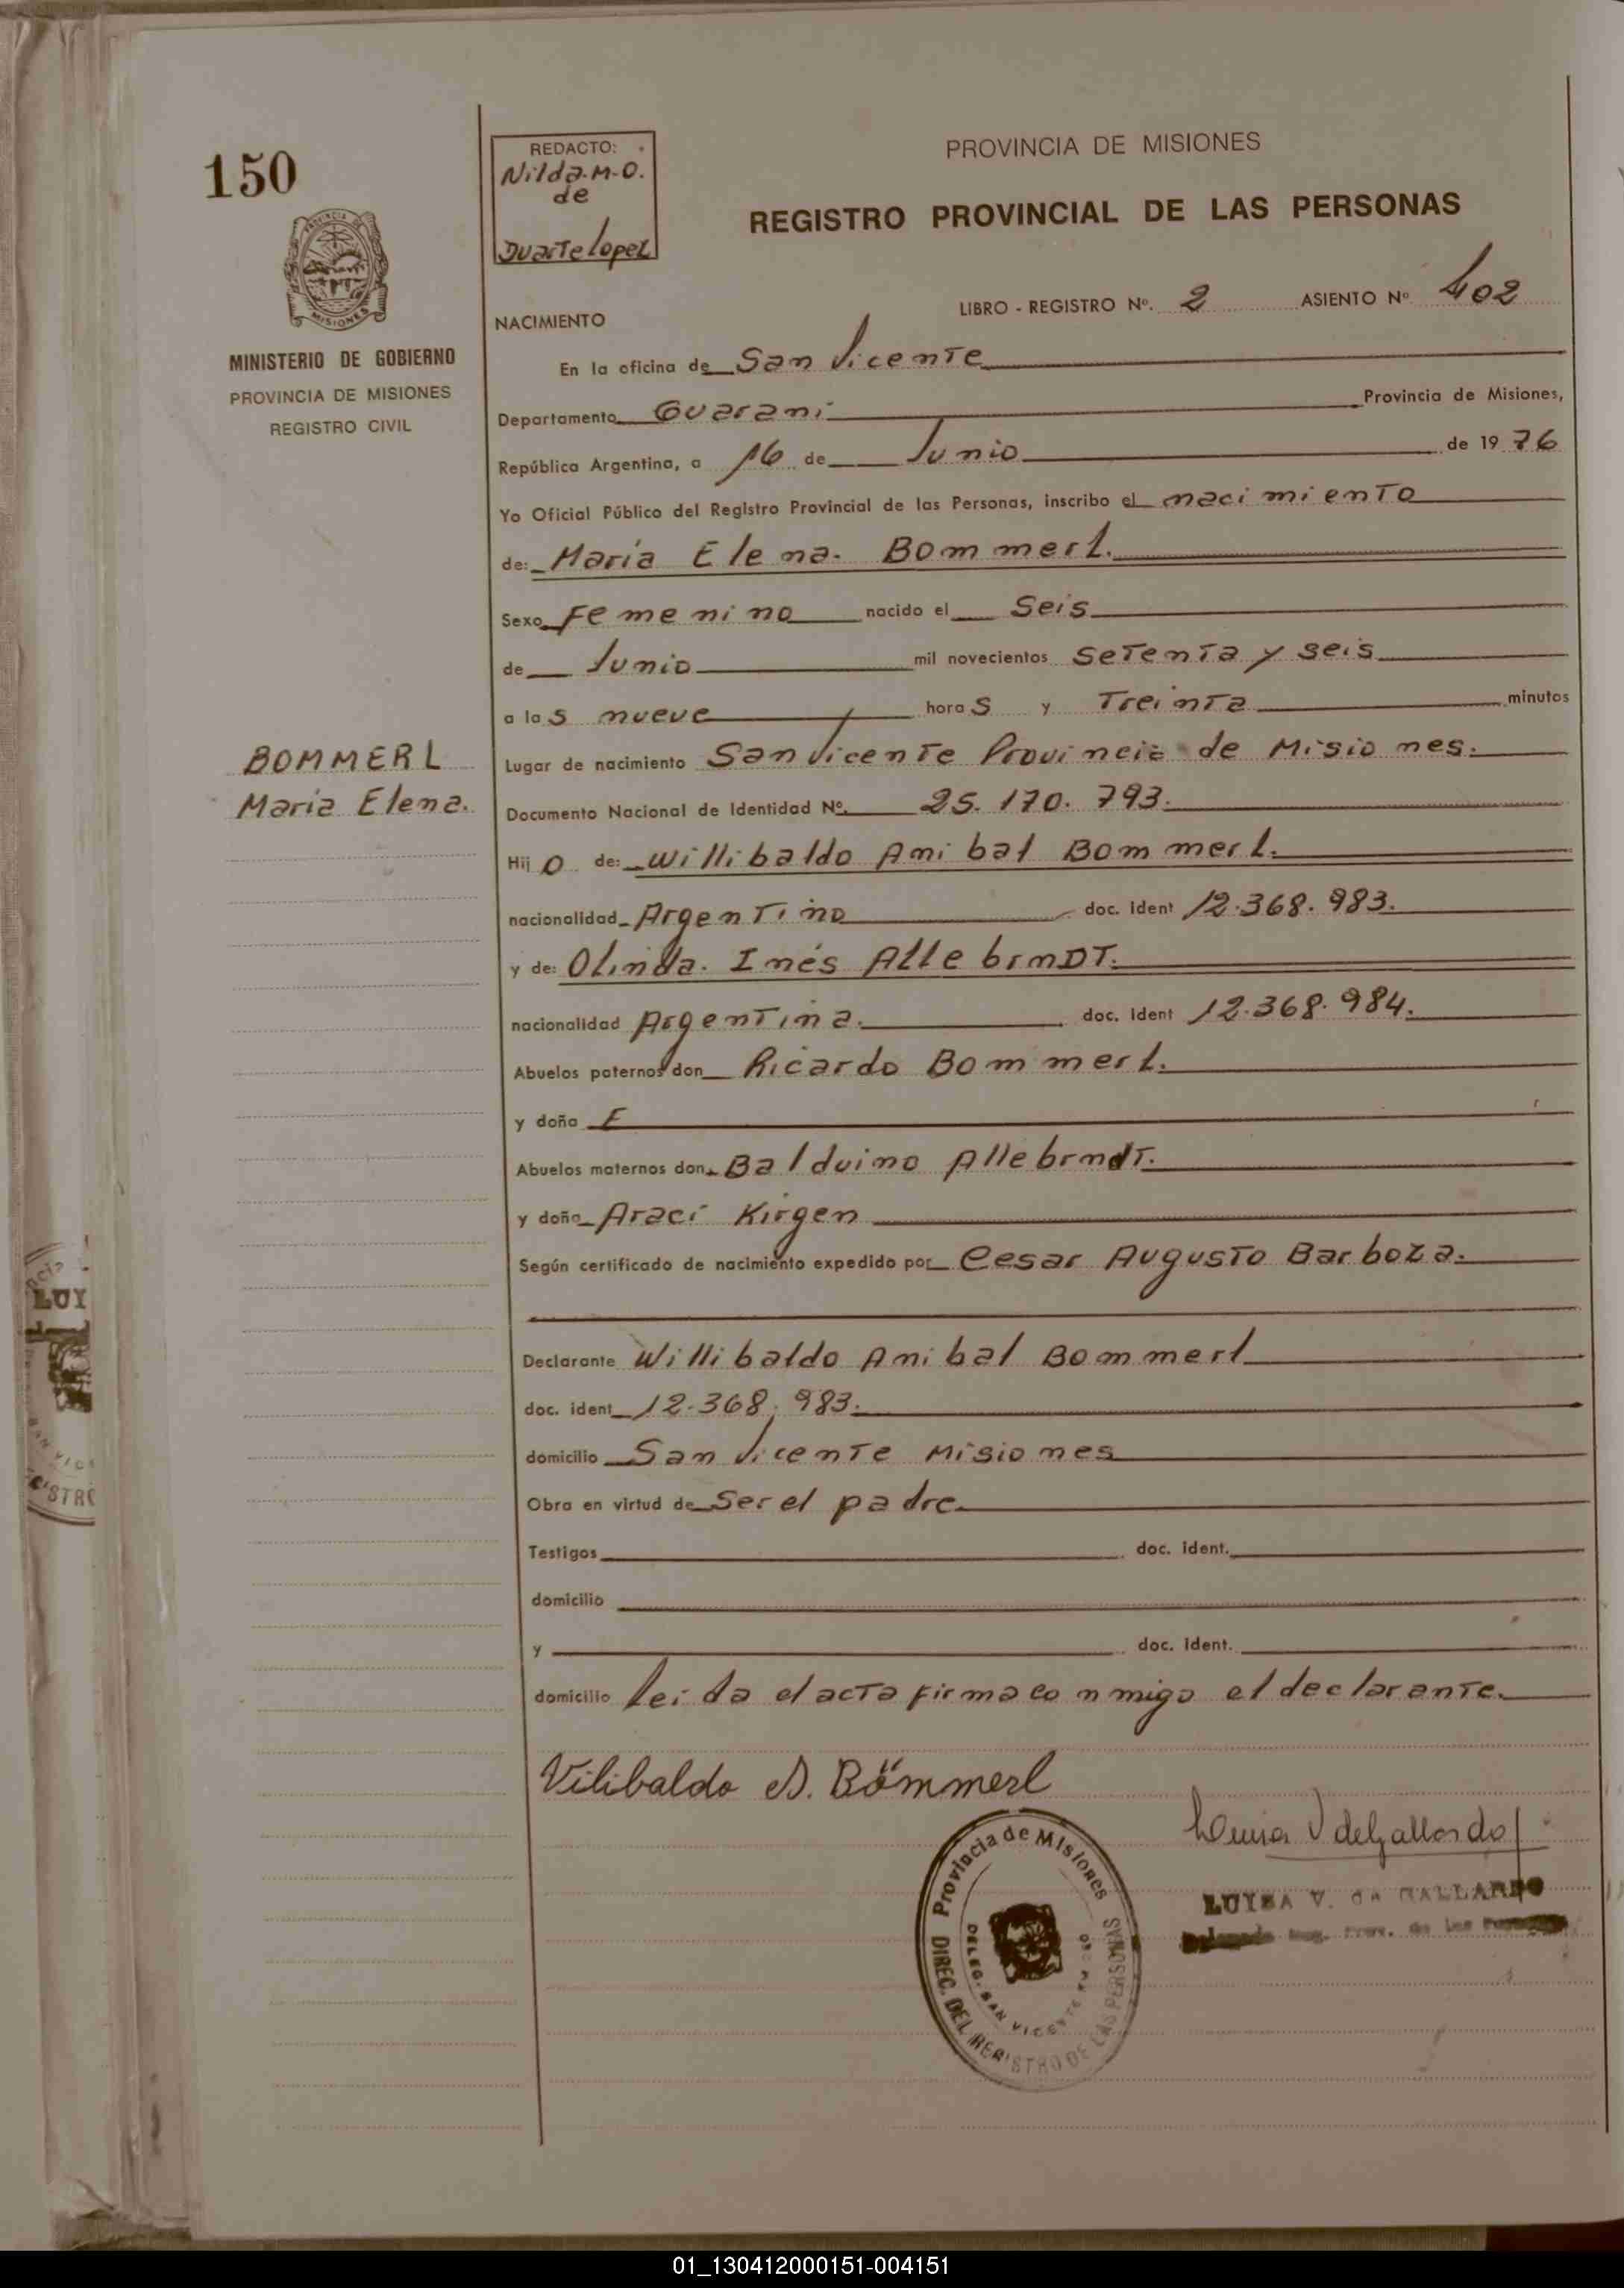 150
REDACTO:
Nilda.M.O.
de
Duarte Lopez
PROVINCIA DE MISIONES
REGISTRO PROVINCIAL DE LAS PERSONAS
PROVINCIA DE
MISIONES
MINISTERIO DE GOBIERNO
PROVINCIA DE MISIONES
REGISTRO CIVIL
LIBRO - REGISTRO Nº. 2 ASIENTO Nº 402
NACIMIENTO
En la oficina de San Vicente
Departamento Guarani Provincia de Misiones,
República Argentina, a 16 de Junio de 1976
Yo Oficial Público del Registro Provincial de las Personas, inscribo el nacimiento
de: Maria Elena. Bommerl.
Sexo Femenino nacido el Seis
de Junio mil novecientos setenta y seis
a las nueve horas y Treinta minutos
BOMMERL
Maria Elena.
Lugar de nacimiento San Vicente Provincia de Misiones.
Documento Nacional de Identidad Nº. 25.170.793.
Hijo de: Willibaldo Anibal Bommerl.
nacionalidad Argentino doc. ident 12.368.983.
y de: Olinda. Inés Allebrndt.
nacionalidad Argentina. doc. ident 12.368.984.
Abuelos paternos don Ricardo Bommerl.
y doña
Abuelos maternos don Balduino Allebrndt.
y doña Araci Kirgen
Según certificado de nacimiento expedido por Cesar Augusto Barboza.
Declarante Willibaldo Anibal Bommerl
doc. ident 12.368.983.
domicilio San Vicente Misiones
Obra en virtud de Ser el padre.
Testigos doc. ident.
domicilio
y doc. ident.
domicilio Leida el acta firma conmigo el declarante.
Vilibaldo A. Bömmerl
Luisa V de Gallardo
LUISA V. DE GALLARDO
Delegada Reg. Prov. de las Personas
Provincia de Misiones
DIREC. DEL REGISTRO DE LAS PERSONAS
DELEG. SAN VICENTE
LUI
ISTRO
01_130412000151-004151